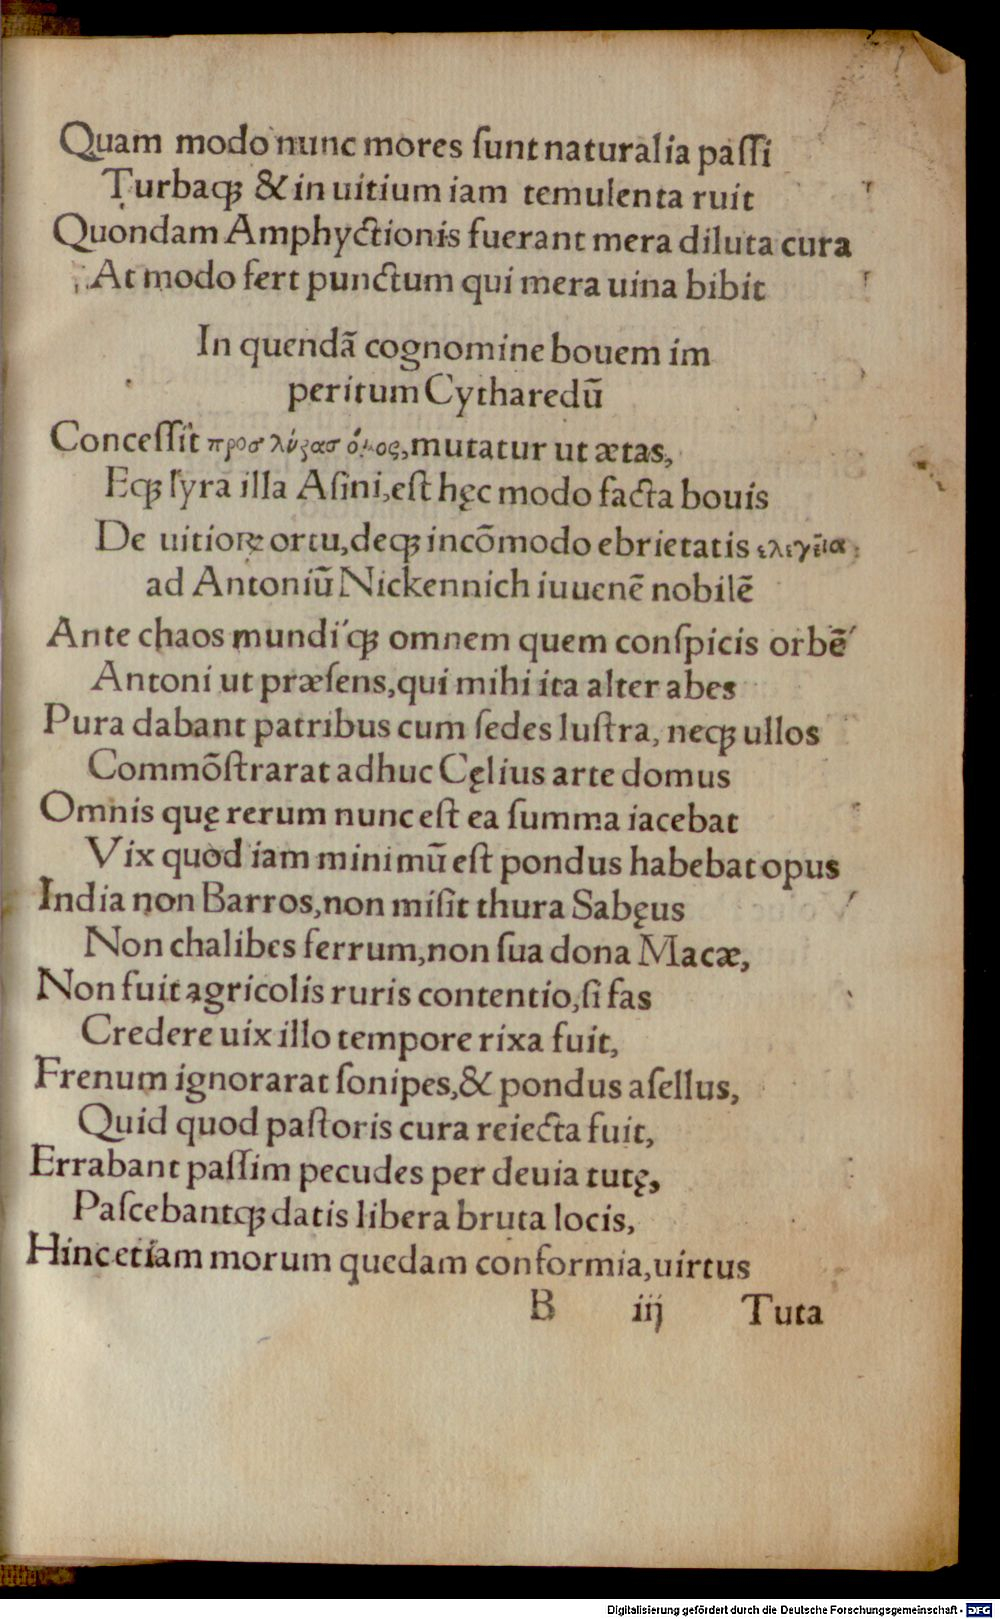 Quam modo nunc mores ſunt naturalia paſſi
Turbaqꝫ & in uitium iam temulenta ruit
Quondam Amphyctionis fuerant mera diluta cura
At modo fert punctum qui mera uina bibit
In quendã cognomine bouem im
peritum Cytharedũ
Conceſſit προσ λύρασ ὄνος, mutatur ut ætas,
Eqꝫ lyra illa Aſini, eſt hęc modo facta bouis
De uitioꝝ ortu, deqꝫ incõmodo ebrietatis
ad Antoniũ Nickennich iuuenẽ nobilẽ
Ante chaos mundi'qꝫ omnem quem conſpicis orbẽ
Antoni ut præſens, qui mihi ita alter abes
Pura dabant patribus cum ſedes luſtra, neqꝫ ullos
Commõſtrarat adhuc Cęlius arte domus
Omnis quę rerum nunc eſt ea ſumma iacebat
Vix quod iam minimũ eſt pondus habebat opus
India non Barros, non miſit thura Sabęus
Non chalibes ferrum, non ſua dona Macæ,
Non fuit agricolis ruris contentio, ſi fas
Credere uix illo tempore rixa fuit,
Frenum ignorarat ſonipes, & pondus aſellus,
Quid quod paſtoris cura reiecta fuit,
Errabant paſſim pecudes per deuia tutę,
Paſcebantqꝫ datis libera bruta locis,
Hinc etiam morum quedam conformia, uirtus
B iij Tuta
Digitalisierung gefördert durch die Deutsche Forschungsgemeinschaft - DFG